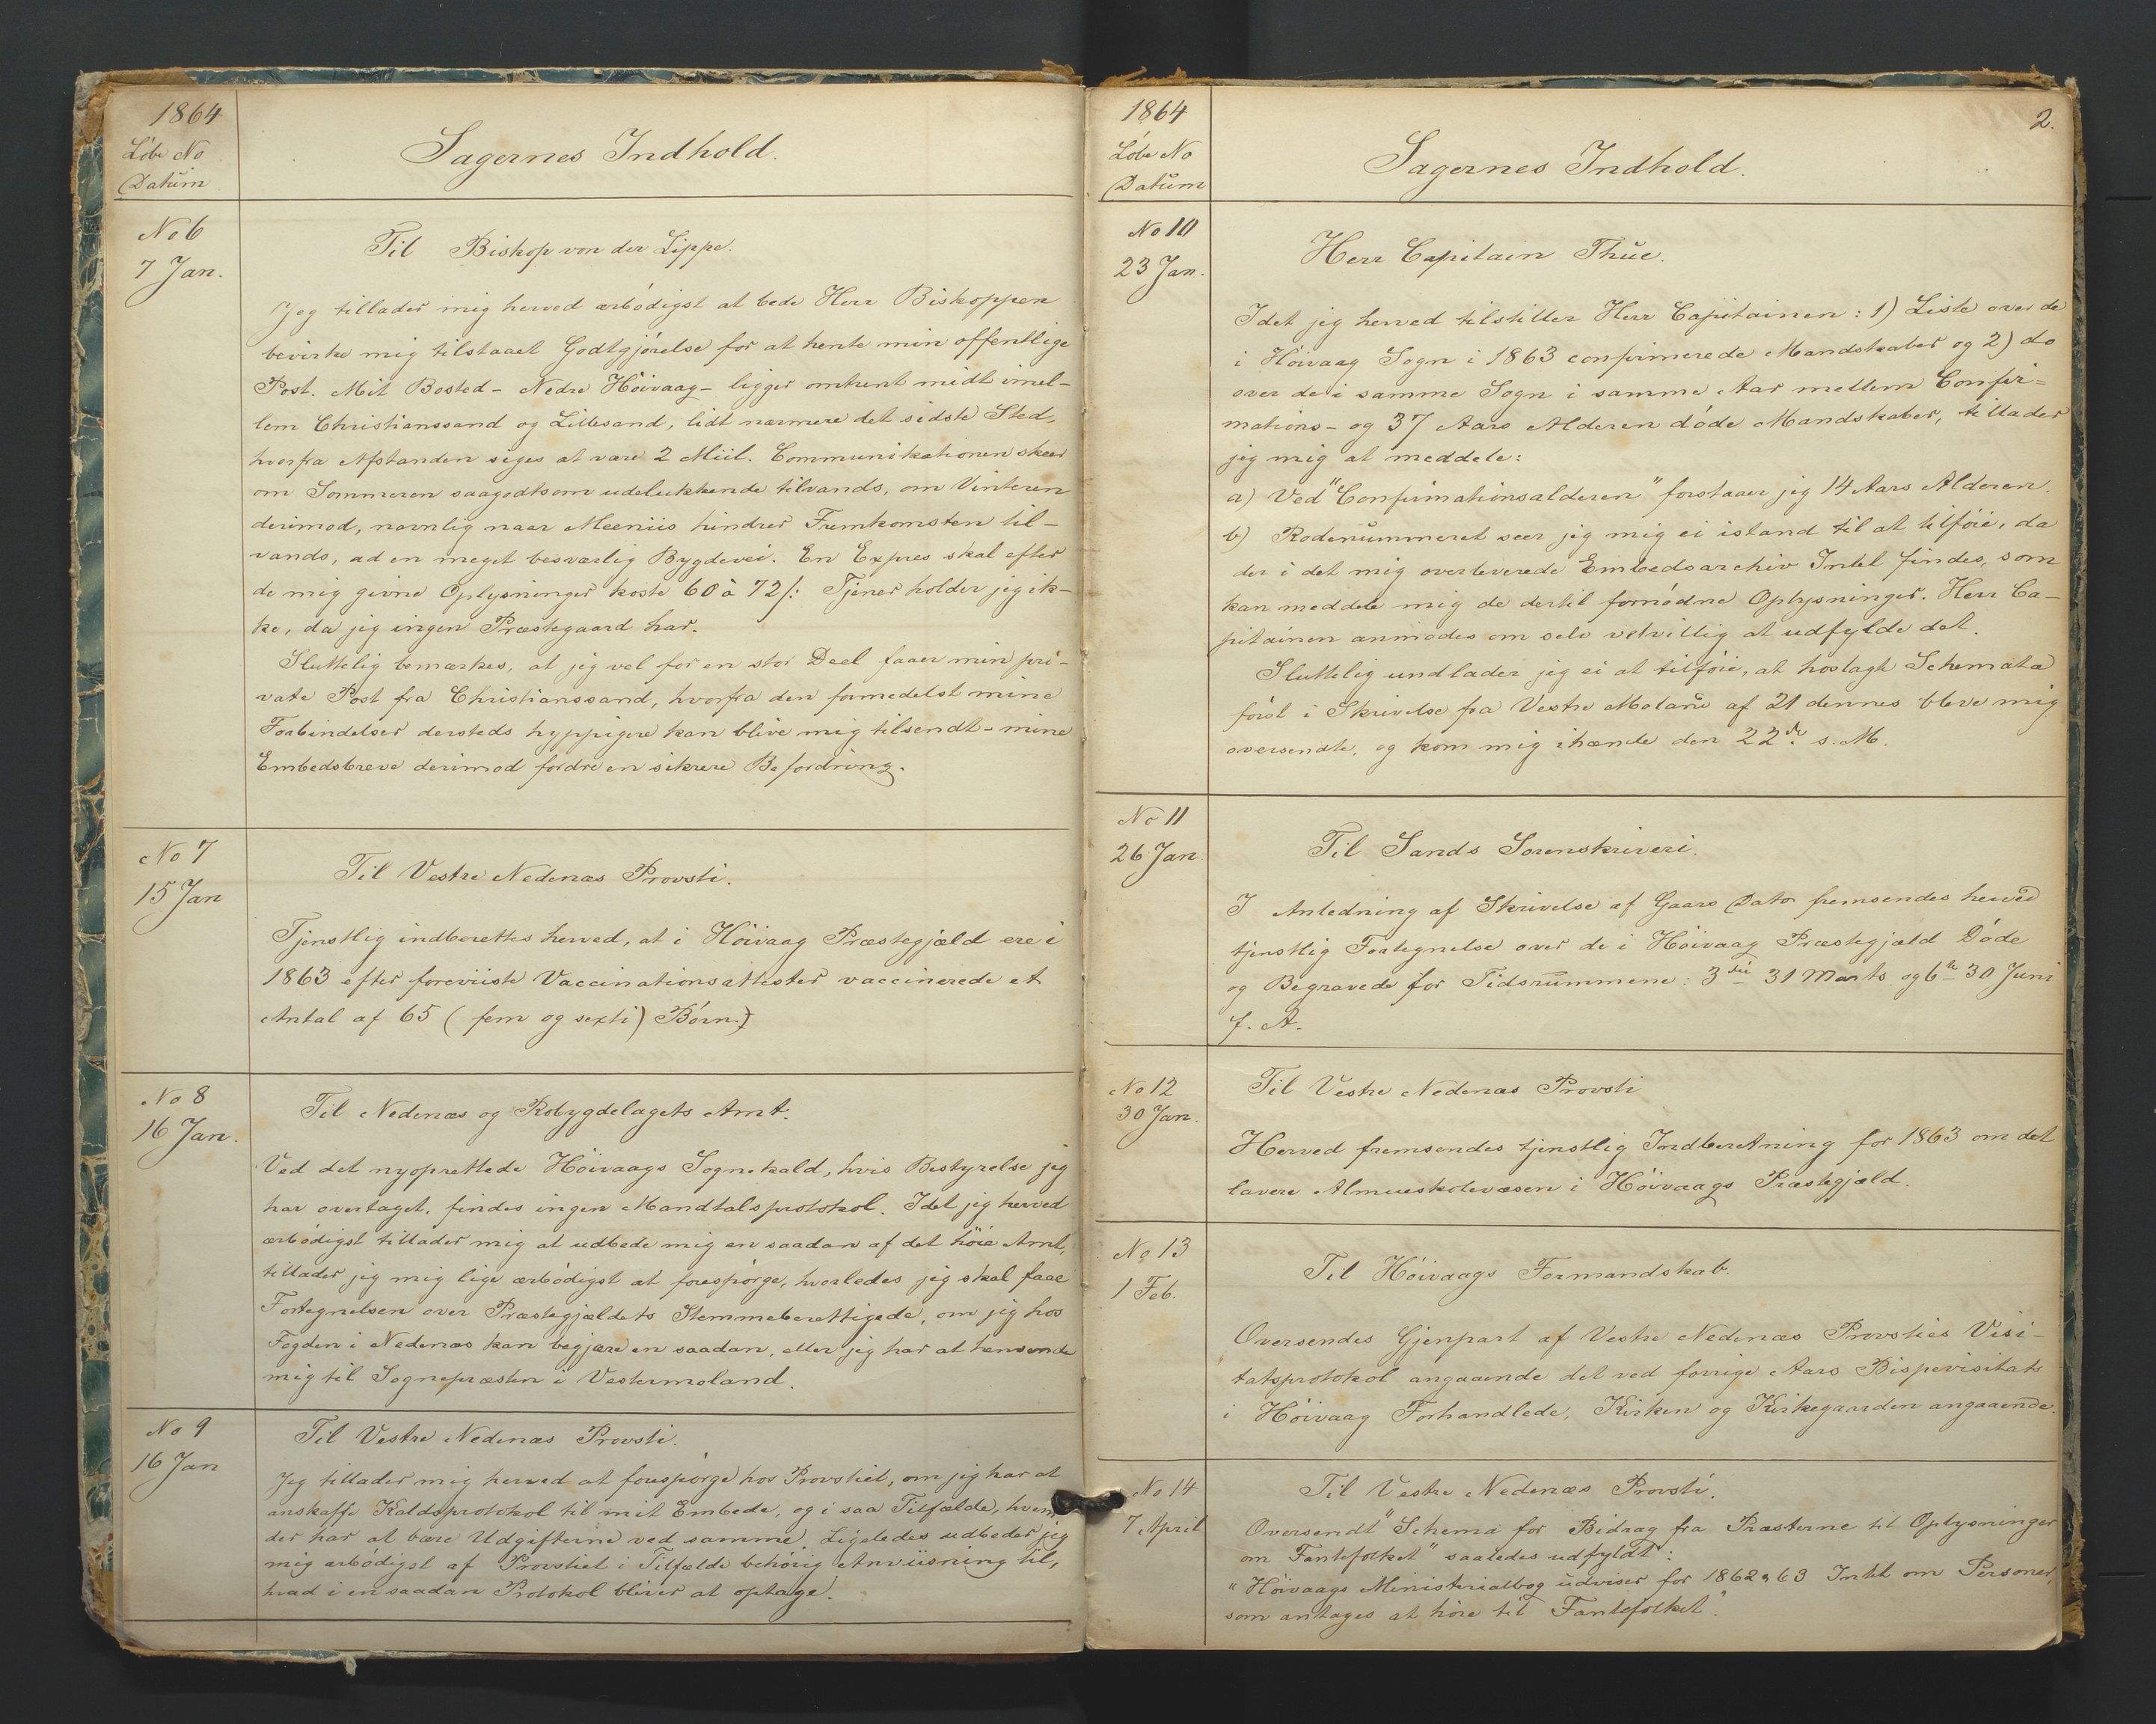 1864
Löbe No
Datum
Sagernes Indhold.
No 6
7 Jan.
Til Biskop von der Lippe.
Jeg tillader mig herved ærbödigst at bede Herr Biskoppen
bevirke mig tilstaaet Godtgjörelse for at hente min offentlige
Post. Mit Bosted - Nedre Höivaag - ligger omtrent midt imel-
lem Christianssand og Lillesand, lidt nærmere det sidste Sted,
hvorfra Afstanden siges at være 2 Miil. Communikationen skeer
om Sommeren saagodtsom udelukkende tilvands, om Vinteren
derimod, navnlig naar Meeniis hindrer Fremkomsten til-
vands, ad en meget besværlig Bygdevei. En Expres skal efter
de mig givne Oplysninger koste 60 à 72 /: Tjener holder jeg ik-
ke, da jeg ingen Præstegaard har.
Sluttelig bemærkes, at jeg vel for en stor Deel faaer min pri-
vate Post fra Christianssand, hvorfra den formedelst mine
Forbindelser dersteds hyppigere kan blive mig tilsendt - mine
Embedsbreve derimod fordre en sikrere Befordring.
No 7
15 Jan
Til Vestre Nedenæs Provsti.
Tjenstlig indberettes herved, at i Höivaag Præstegjæld ere i
1863 efter foreviiste Vaccinationsattester vaccinerede et
Antal af 65 (fem og sexti) Börn.
No 8
16 Jan.
Til Nedenæs og Robygdelagets Amt.
Ved det nyoprettede Höivaags Sognekald, hvis Bestyrelse jeg
har overtaget, findes ingen Mandtalsprotokol. Idet jeg herved
ærbödigst tillader mig at udbede mig en saadan af det höie Amt,
tillader jeg mig lige ærbödigst at forespörge, hvorledes jeg skal faae
Fortegnelsen over Præstegjældets Stemmeberettigede, om jeg hos
Fogden i Nedenæs kan begjære en saadan, eller jeg har at henvende
mig til Sognepræsten i Vestermoland.
No 9
16 Jan
Til Vestre Nedenæs Provsti.
Jeg tillader mig herved at forespörge hos Provstiet, om jeg har at
anskaffe Kaldsprotokol til mit Embede, og i saa Tilfælde, hvem
der har at bære Udgifterne ved samme. Ligeledes udbeder jeg
mig ærbödigst af Provstiet i Tilfælde behörig Anviisning til,
hvad i en saadan Protokol bliver at optage.
1864
Löbe No
Datum
Sagernes Indhold.
2.
No 10
23 Jan.
Herr Capitain Thue.
Idet jeg herved tilstiller Herr Capitainen: 1) Liste over de
i Höivaag Sogn i 1863 confirmerede Mandskaber og 2) do
over de i samme Sogn i samme Aar mellem Confir=
mations- og 37 Aars Alderen döde Mandskaber, tillader
jeg mig at meddele:
a) Ved "Confirmationsalderen" forstaaer jeg 14 Aars Alderen.
b) Rodenummeret seer jeg mig ei istand til at tilföie, da
der i det mig overleverede Embedsarchiv Intet findes, som
kan meddele mig de dertil fornödne Oplysninger. Herr Ca-
pitainen anmodes om selv velvillig at udfylde det.
Sluttelig undlader jeg ei at tilföie, at hoslagte Schemata
först i Skrivelse fra Vestre Moland af 21 dennes bleve mig
oversendte, og kom mig ihænde den 22de s. M.
No 11
26 Jan
Til Sands Sorenskriveri.
I Anledning af Skrivelse af Gaars Dato fremsendes herved
tjenstlig Fortegnelse over de i Höivaag Præstegjæld Döde
og Begravede for Tidsrummene: 3die - 31 Marts og 6te - 30 Juni
f. A.
No 12
30 Jan.
Til Vestre Nedenæs Provsti
Herved fremsendes tjenstlig Indberetning for 1863 om det
lavere Almueskolevæsen i Höivaags Præstegjæld.
No 13
1 Feb.
Til Höivaags Formandskab.
Oversendes Gjenpart af Vestre Nedenæs Provsties Visi-
tatsprotokol angaaende det ved forrige Aars Bispevisitats
i Höivaag Forhandlede, Kirken og Kirkegaarden angaaende.
No 14
7 April
Til Vestre Nedenæs Provsti.
Oversendt "Schema for Bidrag fra Præsterne til Oplysninger
om Fantefolket" saaledes udfyldt:
"Höivaags Ministerialbog udviser for 1862 & 63 Intet om Personer,
som antages at höre til Fantefolket".